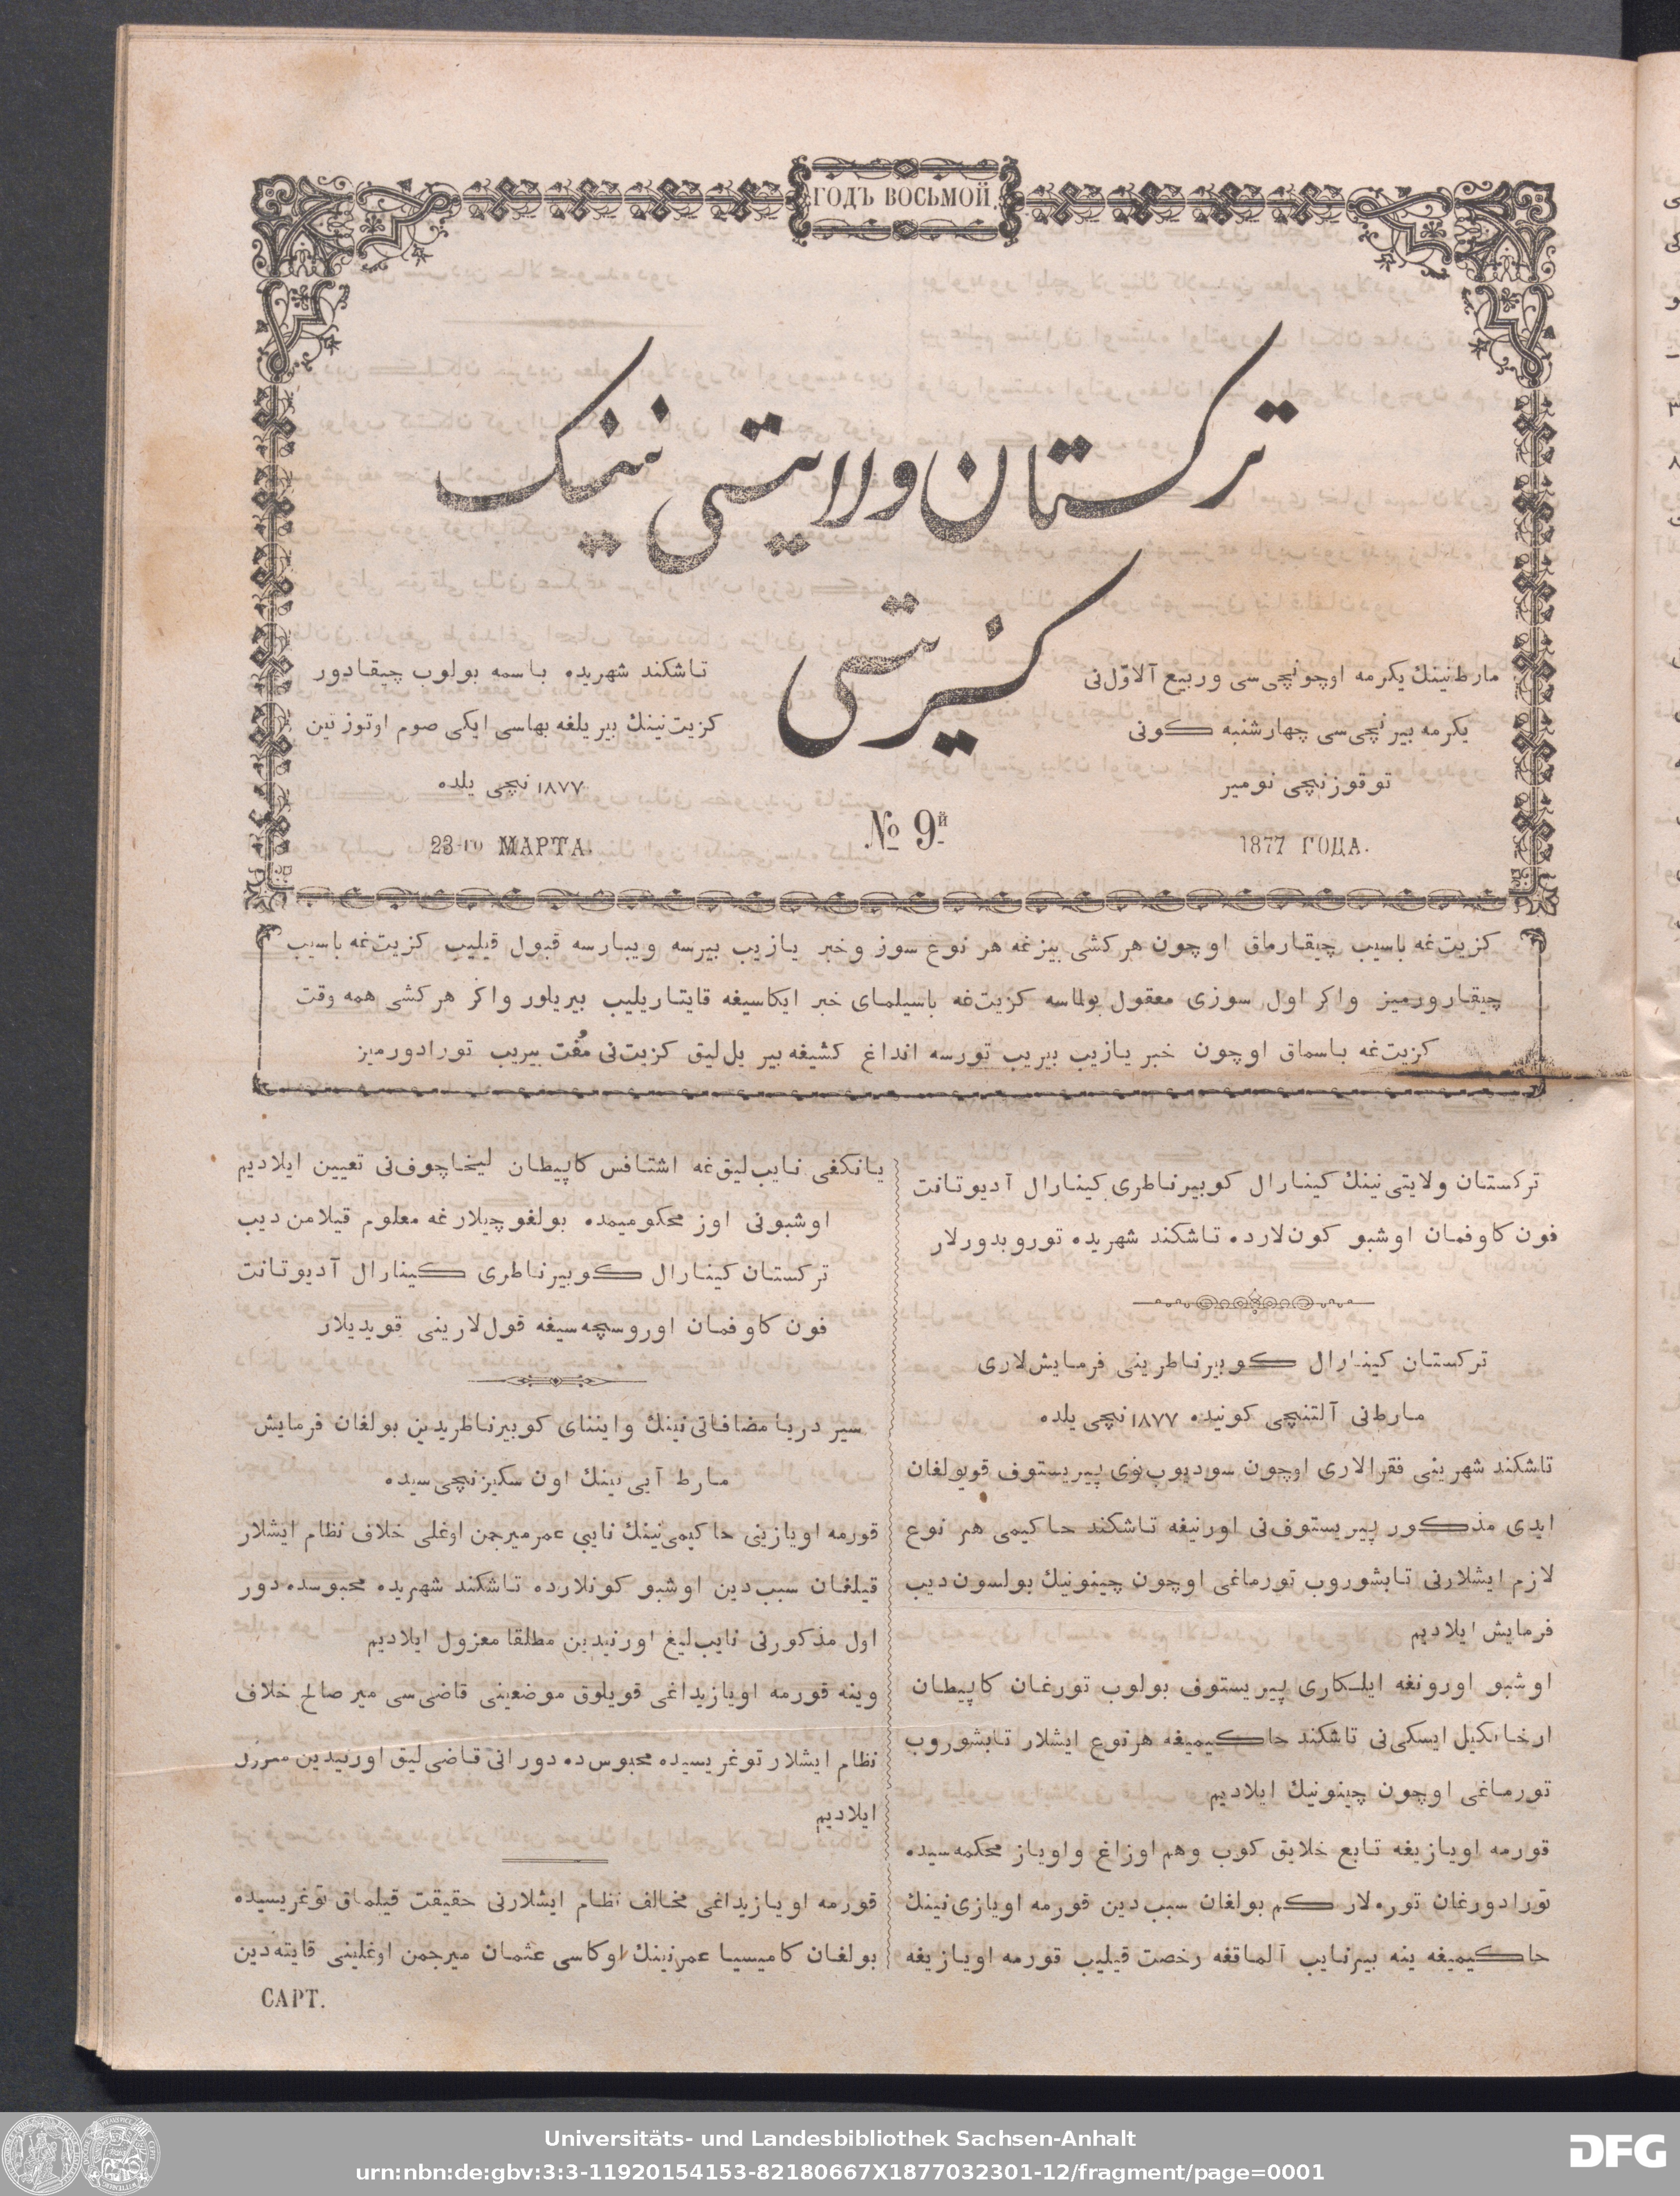 ГОДЪ ВОСЬМОЙ
ترکستان ولایتی نینک
کزیتی
مارط‌نینك یکرمه اوچونچی‌سی وربیع آلاوّل‌نی
یکرمه بیرنچی‌سی چهارشنبه کونی
توقوزنچی نومیر
1877 ГОДА.
تاشکند شهریده باسمه بولوب چیقادور
کزیت‌نینك بیریلغه بهاسی ایکی صوم اوتوز تین
۱۸۷۷ نچی یلده
№ 9й
23-го МАРТА.
کزیت‌غه باسیب چیقارماق اوچون هرکشی بیزغه هر نوع سوز وخبر یازیب بیرسه ویبارسه قبول قیلیب کزیت‌غه باسیب
چیقارورمیز واکر اول سوزی معقول بولماسه کزیت‌غه باسیلمای خبر ایکاسیغه قایتاریلیب بیریلور واکر هرکشی همه وقت
کزیت‌غه باسماق اوچون خبر یازیب بیریب تورسه انداغ کشیغه بیر یل‌لیق کزیت‌نی مُفت بیریب تورادورمیز
ترکستان ولایتی‌نینك کینارال کوبیرناطری کینارال آدیوتانت
فون کاوفمان اوشبو کون‌لارده تاشکند شهریده توروبدورلار
ترکستان کینارال کوبیرناطرینی فرمایش‌لاری
مارط‌نی آلتنچی کونیده ۱۸۷۷ نچی یلده
تاشکند شهرینی فقرالاری اوچون سودیوب‌نوی پیریستوف قویولغان
ایدی مذکور پیریستوف‌نی اورنیغه تاشکند حاکیمی هر نوع
لازم ایشلارنی تابشوروب تورماغی اوچون چینونیك بولسون دیب
فرمایش ایلادیم
اوشبو اورونغه ایلکاری پیریستوف بولوب تورغان کاپیطان
ارخانکیل ایسکی‌نی تاشکند حاکیمیغه هرنوع ایشلار تابشوروب
تورماغی اوچون چینونیك ایلادیم
قورمه اویازیغه تابع خلایق کوب وهم اوزاغ واویاز محکمه‌سیده
تورادورغان توره‌لار کم بولغان سبب‌دین قورمه اویازی‌نینك
حاکیمیغه ینه بیرنایب آلماقغه رخصت قیلیب قورمه اویازیغه
یانکغی نایب‌لیق‌غه اشتافس کاپیطان لیخاچوف‌نی تعیین ایلادیم
اوشبونی اوز محکومیمده بولغوچیلارغه معلوم قیلامن دیب
ترکستان کینارال کوبیرناطری کینارال آدیوتانت
فون کاوفمان اوروسچه‌سیغه قول‌لارینی قویدیلار
سیر دریا مضافاتی‌نینك وایننای کوبیرناطریدین بولغان فرمایش
مارط آیی‌نینك اون سکیزنچی‌سیده
قورمه اویازینی حاکیمی‌نینك نایبی عمرمیرجمن اوغلی خلاف نظام ایشلار
قیلغان سبب‌دین اوشبو کونلارده تاشکند شهریده محبوسده دور
اول مذکورنی نایب‌لیغ اورنیدین مطلقا معزول ایلادیم
وینه قورمه اویازیداغی قویلوق موضعینی قاضی‌سی میر صالح خلاف
نظام ایشلار توغریسیده محبوس‌ده دور انی قاضی‌لیق اورنیدین معزول
ایلادیم
قورمه اویازیداغی مخالف نظام ایشلارنی حقیقت قیلماق توغریسیده
بولغان کامیسیا عمرنینك اوکاسی عثمان میرجمن اوغلینی قایته‌دین
САРТ.
Universitäts- und Landesbibliothek Sachsen-Anhalt
urn:nbn:de:gbv:3:3-11920154153-82180667X1877032301-12/fragment/page=0001
DFG